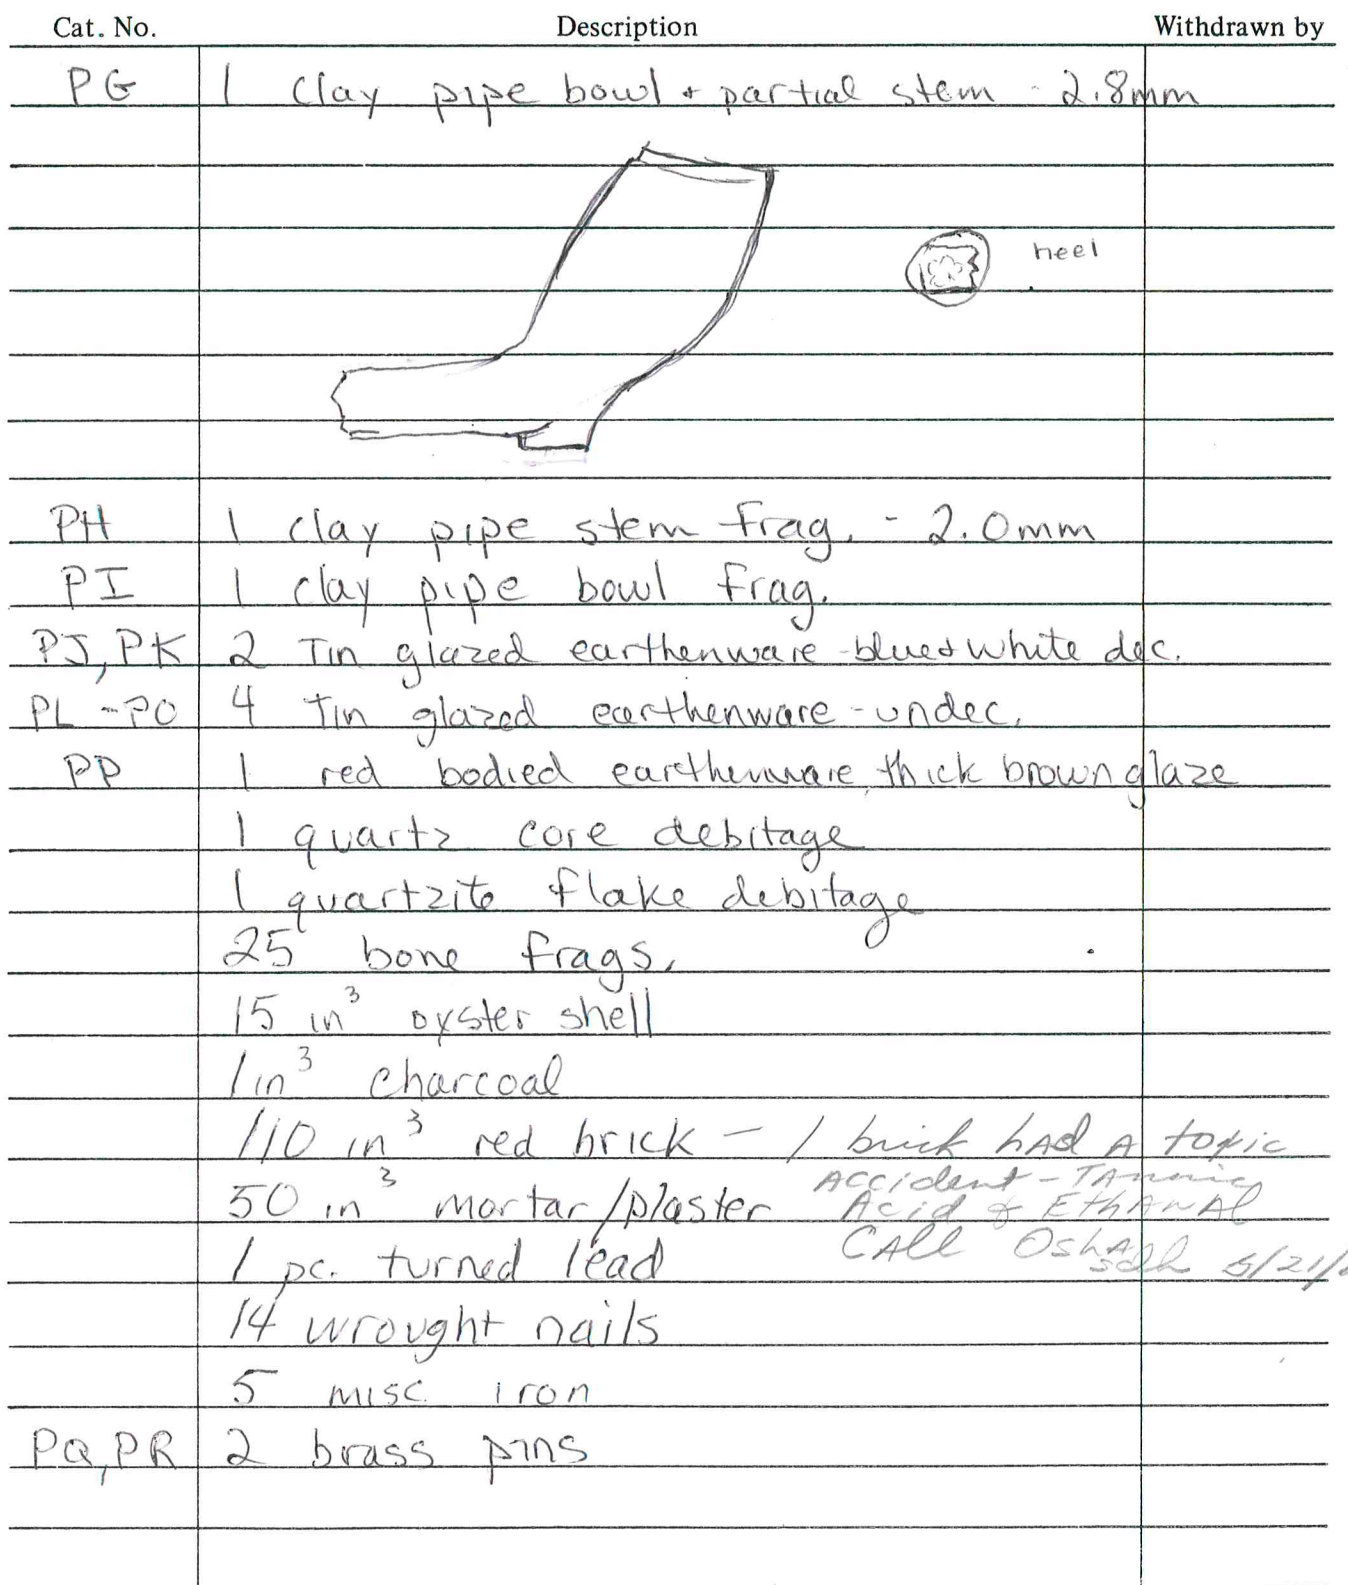 Cat. No. Description Withdrawn by
PG 1 clay pipe bowl + partial stem - 2.8mm
heel
PH 1 clay pipe stem frag. - 2.0mm
PI 1 clay pipe bowl frag.
PJ, PK 2 Tin glazed earthenware - blue + white dec.
PL - PO 4 Tin glazed earthenware - undec.
PP 1 red bodied earthenware, thick brown glaze
1 quartz core debitage
1 quartzite flake debitage
25 bone frags.
15 in³ oyster shell
1 in³ charcoal
110 in³ red brick - 1 brick had a toxic
Accident - Tannic
50 in³ mortar/plaster Acid & Ethanal
Call Osha
1 pc. turned lead 5/21/
14 wrought nails
5 misc iron
PQ, PR 2 brass pins